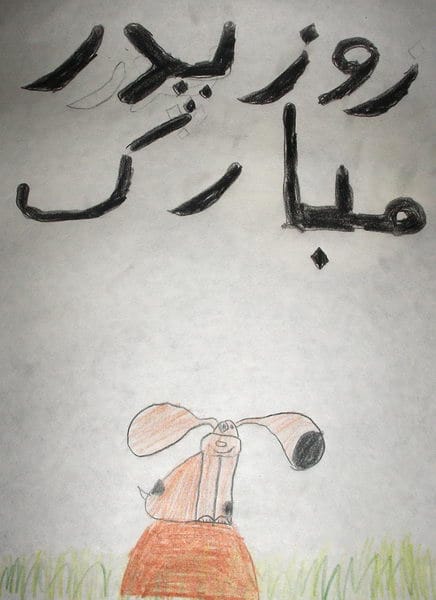 روز پدر
مبارک